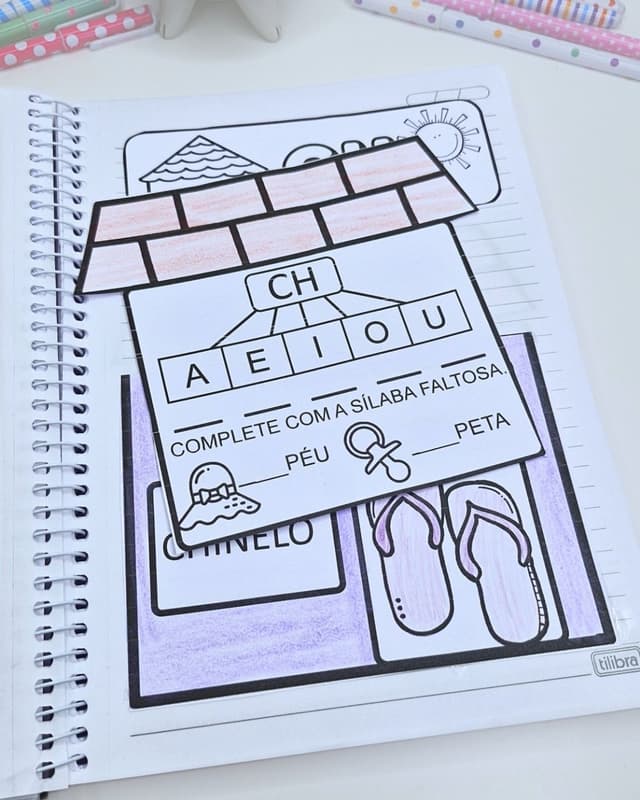 CH
A E I O U
COMPLETE COM A SÍLABA FALTOSA.
____PÉU ____PETA
CHINELO
tilibra